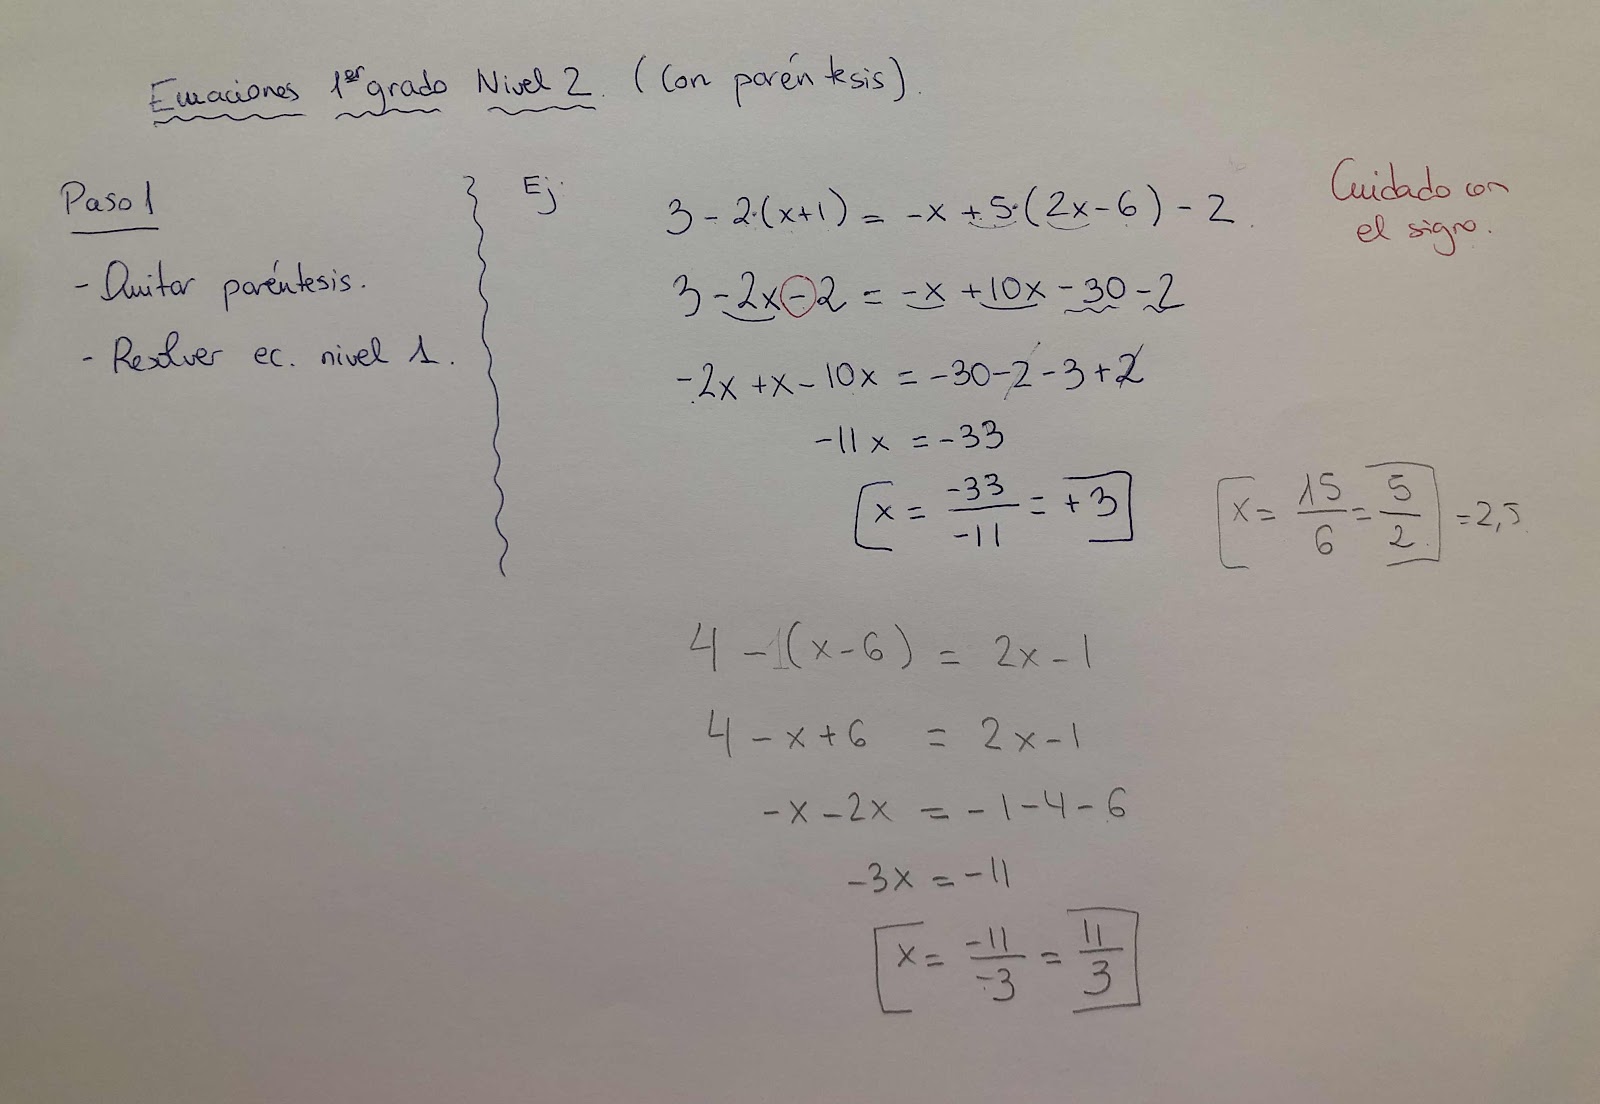 Ecuaciones 1er grado Nivel 2. (Con paréntesis).
Paso 1
- Quitar paréntesis.
- Resolver ec. nivel 1.
Ej:
3 - 2·(x+1) = -x + 5·(2x-6) - 2
Cuidado con
el signo.
3 - 2x - 2 = -x + 10x - 30 - 2
-2x + x - 10x = -30 - 2 - 3 + 2
-11x = -33
x = -33/-11 = +3
x = 15/6 = 5/2 = 2,5
4 - 1(x-6) = 2x - 1
4 - x + 6 = 2x - 1
-x - 2x = -1 - 4 - 6
-3x = -11
x = -11/-3 = 11/3